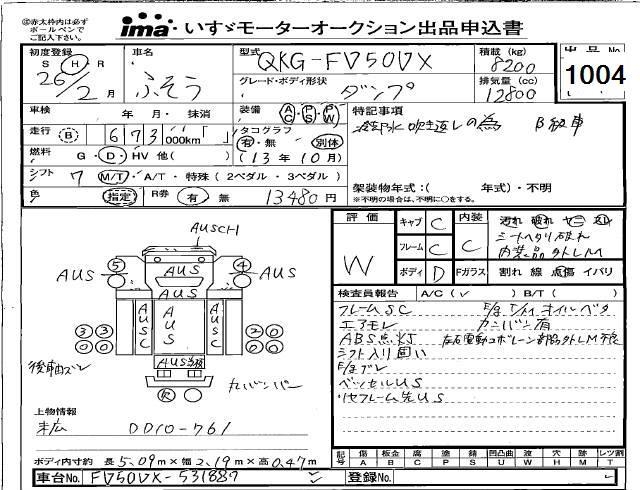 (注)赤太枠内は必ず
ボールペンで
ご記入下さい。
ima いすゞモーターオークション出品申込書
初度登録 S H R 26/2月
車名 ふそう
型式 QKG-FV50VX
積載 (kg) 8200
グレード・ボディ形状 ダンプ
排気量 (cc) 12800
出品No. 1004
車検 年・月・抹消
装備 AC PS PW
特記事項
冷却水吹き返しの為 B級車
走行 B 673,000km「 」
タコグラフ 有・無 別体
燃料 G・D・HV 他( )
(13年10月)
シフト 7 M/T・A/T・特殊(2ペダル・3ペダル)
架装物年式:( 年式)・不明
※不明の場合は、不明に○をする。
色 指定 R券 有 無 13480円
評価 W
キャブ C
内装 C
汚れ 破れ ヤニ スレ
シートヘタリ破れ
内装品外れLM
フレーム C
ボディ D
Fガラス 割れ 線 点傷 イバリ
検査員報告 A/C(✓ ) B/T( )
フレームSC
エアモレ カンバン有
ABS点灯
シフト入り固い
F/ガズレ
ベッセルUS
リヤフレーム先US
AUSCH
AUS AUS AUS
AUS
5 4
AUSC AUS AUSC
3 3 2 0
0 0 0 0
後軸ズレ
R
上物情報
末広 DD10-761
ボディ内寸約 長5.09m×幅2.19m×高0.47m
記号 傷A 板金B 腐C 塗P サビS 凹凸曲U ゆがみW 欠H 跡M レツ割T
車台No. FV50VX-531887
登録No.